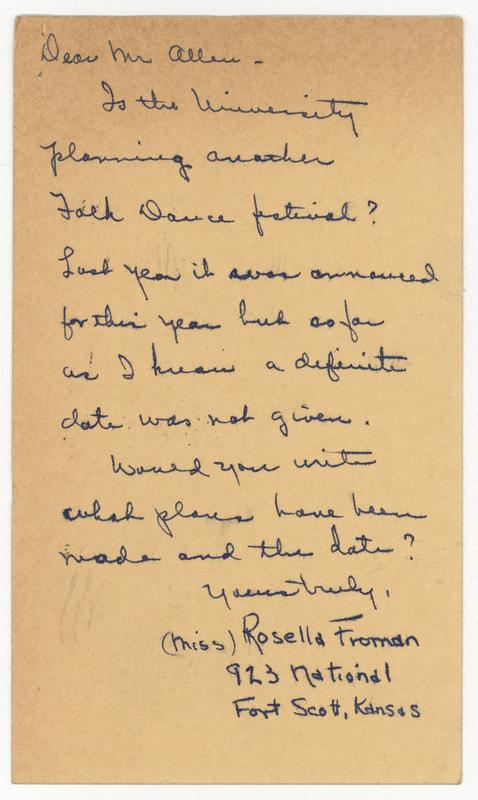 Dear Mr Allen -
Is the University
planning another
Folk Dance festival?
Last year it was announced
for this year but so far
as I know a definite
date was not given.
Would you write
what plans have been
made and the date?
Yours truly,
(Miss) Rosella Froman
923 National
Fort Scott, Kansas